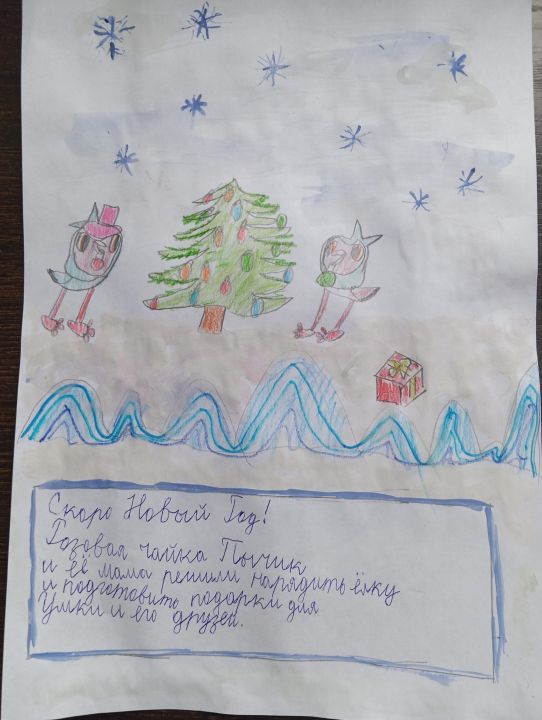 Скоро Новый Год!
Розовая чайка Пычик
и её мама решили нарядить ёлку
и подготовить подарки для
Умки и его друзей.